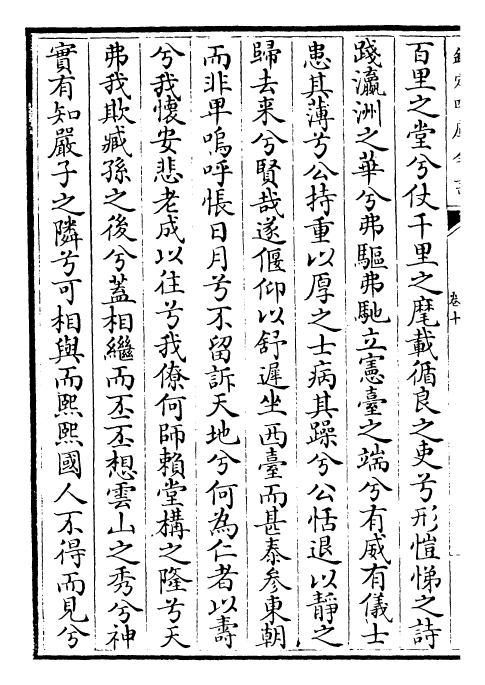 欽定四庫全書
卷十
百里之堂兮仗千里之麾載循良之吏兮形愷悌之詩
踐瀛洲之華兮弗驅弗馳立憲臺之端兮有威有儀士
患其薄兮公持重以厚之士病其躁兮公恬退以靜之
歸去来兮賢哉遂偃仰以舒遲坐西臺而甚泰參東朝
而非卑嗚呼悵日月兮不留訴天地兮何為仁者以壽
兮我懷安悲老成以往兮我僚何師賴堂構之隆兮天
弗我欺臧孫之後兮蓋相繼而丕丕想雲山之秀兮神
實有知嚴子之隣兮可相與而熙熙國人不得而見兮